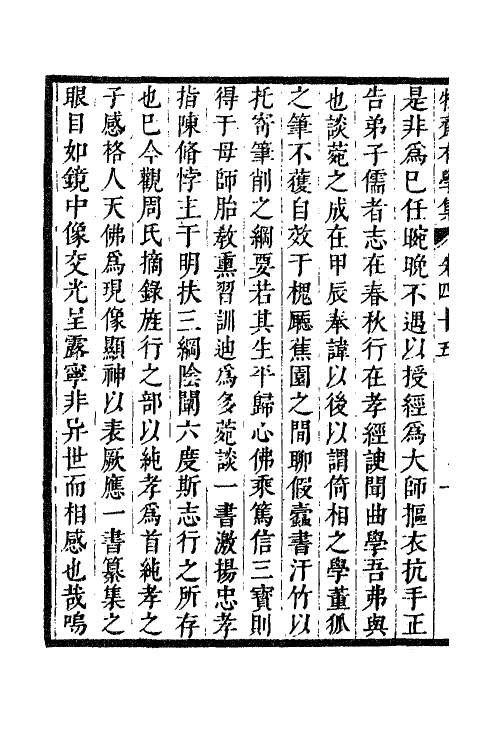 牧齋有學集 卷四十五 一
是非爲已任晼晚不遇以授經爲大師摳衣抗手正
告弟子儒者志在春秋行在孝經諛聞曲學吾弗與
也談菀之成在甲辰奉諱以後以謂倚相之學董狐
之筆不獲自效于槐廳蕉園之間聊假蠹書汗竹以
托寄筆削之綱要若其生平歸心佛乘篤信三寳則
得于母師胎敎熏習訓迪爲多菀談一書激揚忠孝
指陳脩悖主于明扶三綱陰闡六度斯志行之所存
也已今觀周氏摘錄旌行之部以純孝爲首純孝之
子感格人天佛爲現像顯神以表厥應一書纂集之
眼目如鏡中像交光呈露寧非异世而相感也哉嗚